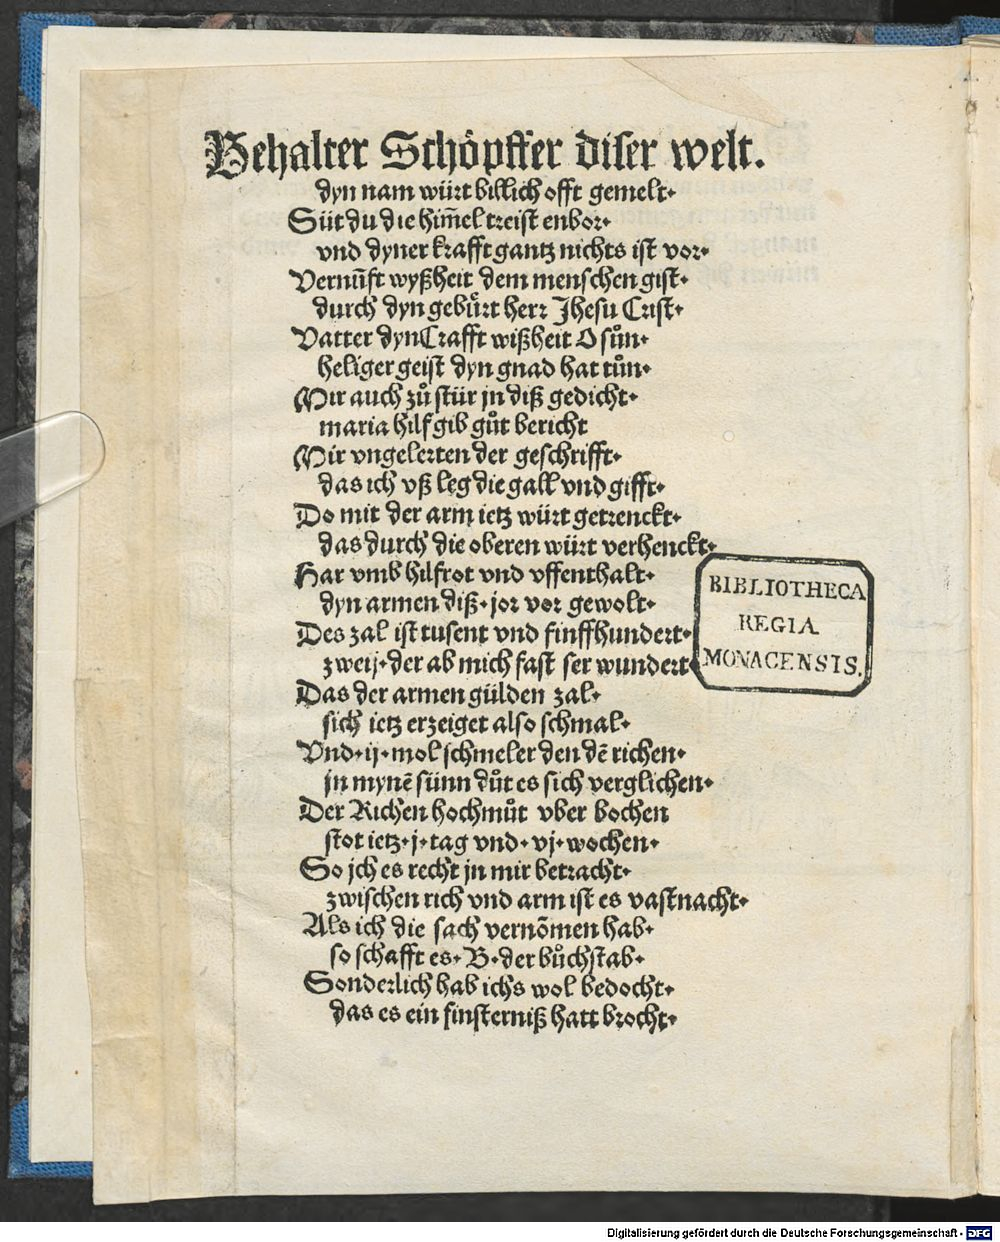 Behalter Schöpffer diser welt.
dyn nam würt billich offt gemelt·
Sit du die him̅el treist enbor·
vnd dyner krafft gantz nichts ist vor·
Vernu̅fft wyßheit dem menschen gist·
durch dyn gebůrt herr Jhesu Crist·
Vatter dyn Crafft wißheit O sůn·
heliger geist dyn gnad hat tůn·
Mir auch zů stür jn diß gedicht·
maria hilf gib gůt bericht
Mir vngelerten der geschrifft·
das ich vß leg die gall vnd gifft·
Do mit der arm ietz würt getrenckt·
das durch die oberen würt verhenckt·
Har vmb hilfrot vnd vffenthalt·
dyn armen diß·jor vor gewolt·
Des zal ist tusent vnd finffhundert·
zweij·der ab mich fast ser wundert·
Das der armen gülden zal·
sich ietz erzeiget also schmal·
Vnd·ij·mol schmeler den dē richen·
jn mynē sünn důt es sich verglichen·
Der Richen hochmůt vber bochen
stot ietz·j·tag vnd·vj·wochen·
So jch es recht jn mir betracht·
zwischen rich vnd arm ist es vastnacht·
Als ich die sach vernōmen hab·
so schafft es·B·der bůchstab·
Sonderlich hab ichs wol bedocht·
das es ein finsterniß hatt brocht·
BIBLIOTHECA
REGIA
MONACENSIS.
Digitalisierung gefördert durch die Deutsche Forschungsgemeinschaft - DFG